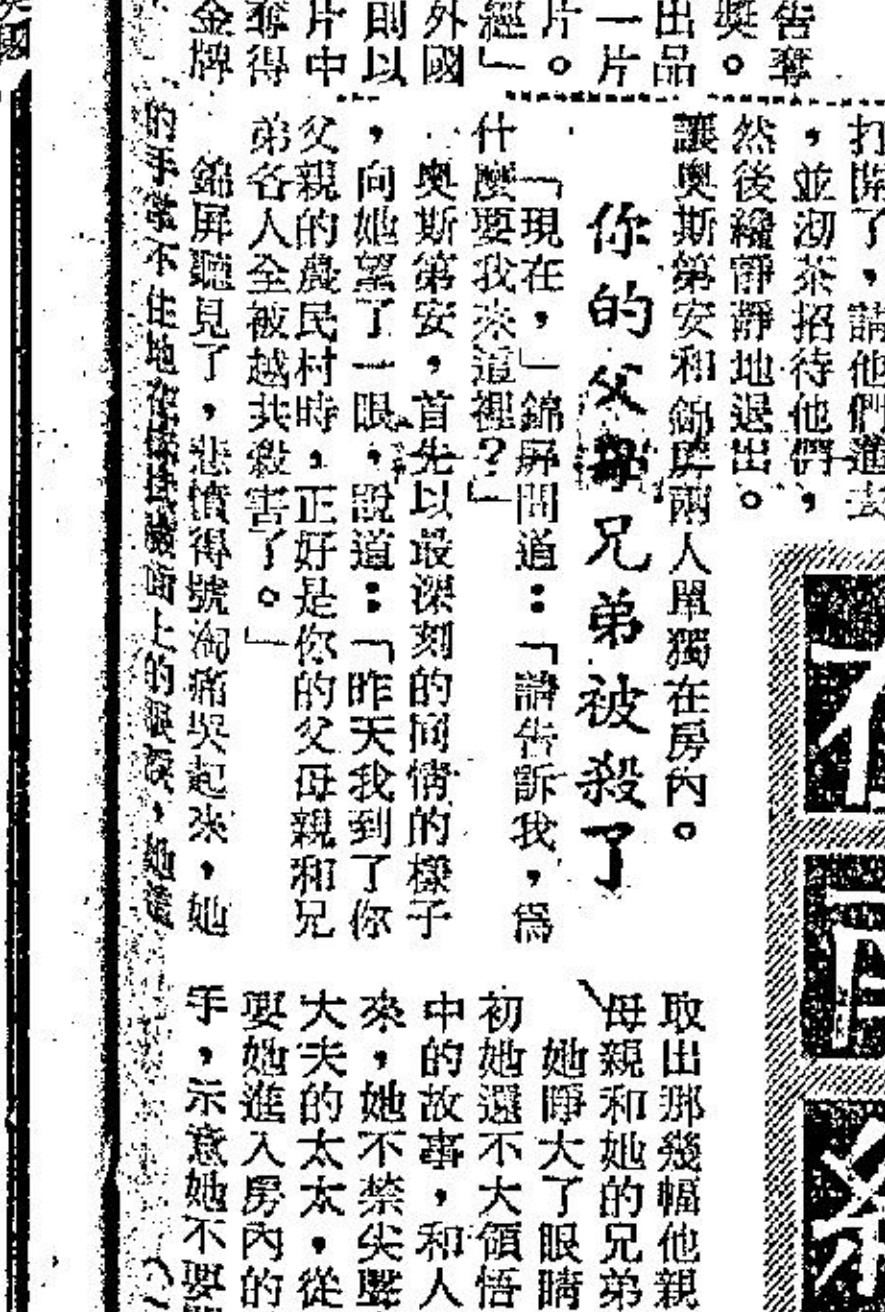 告奪
獎。
出品
一片
片。
經」
外國
則以
片中
奪得
金牌
打開了,請他們進去
,並沏茶招待他們,
然後纔靜靜地退出。
讓奧斯第安和錦屏兩人單獨在房內。
你的父母兄弟被殺了
「現在,」錦屏問道:「請告訴我,爲
什麼要我來這裡?」
奧斯第安,首先以最深刻的同情的樣子
,向她望了一眼,說道:「昨天我到了你
父親的農民村時,正好是你的父母親和兄
弟各人全被越共殺害了。」
錦屏聽見了,悲憤得號淘痛哭起來,她
的手常不住地在 上的眼淚,她
取出那幾幅他親
母親和她的兄弟
她睜大了眼睛
初她還不大領悟
中的故事,和人
來,她不禁尖聲
大夫的太太,從
要她進入房內的
手,示意她不要